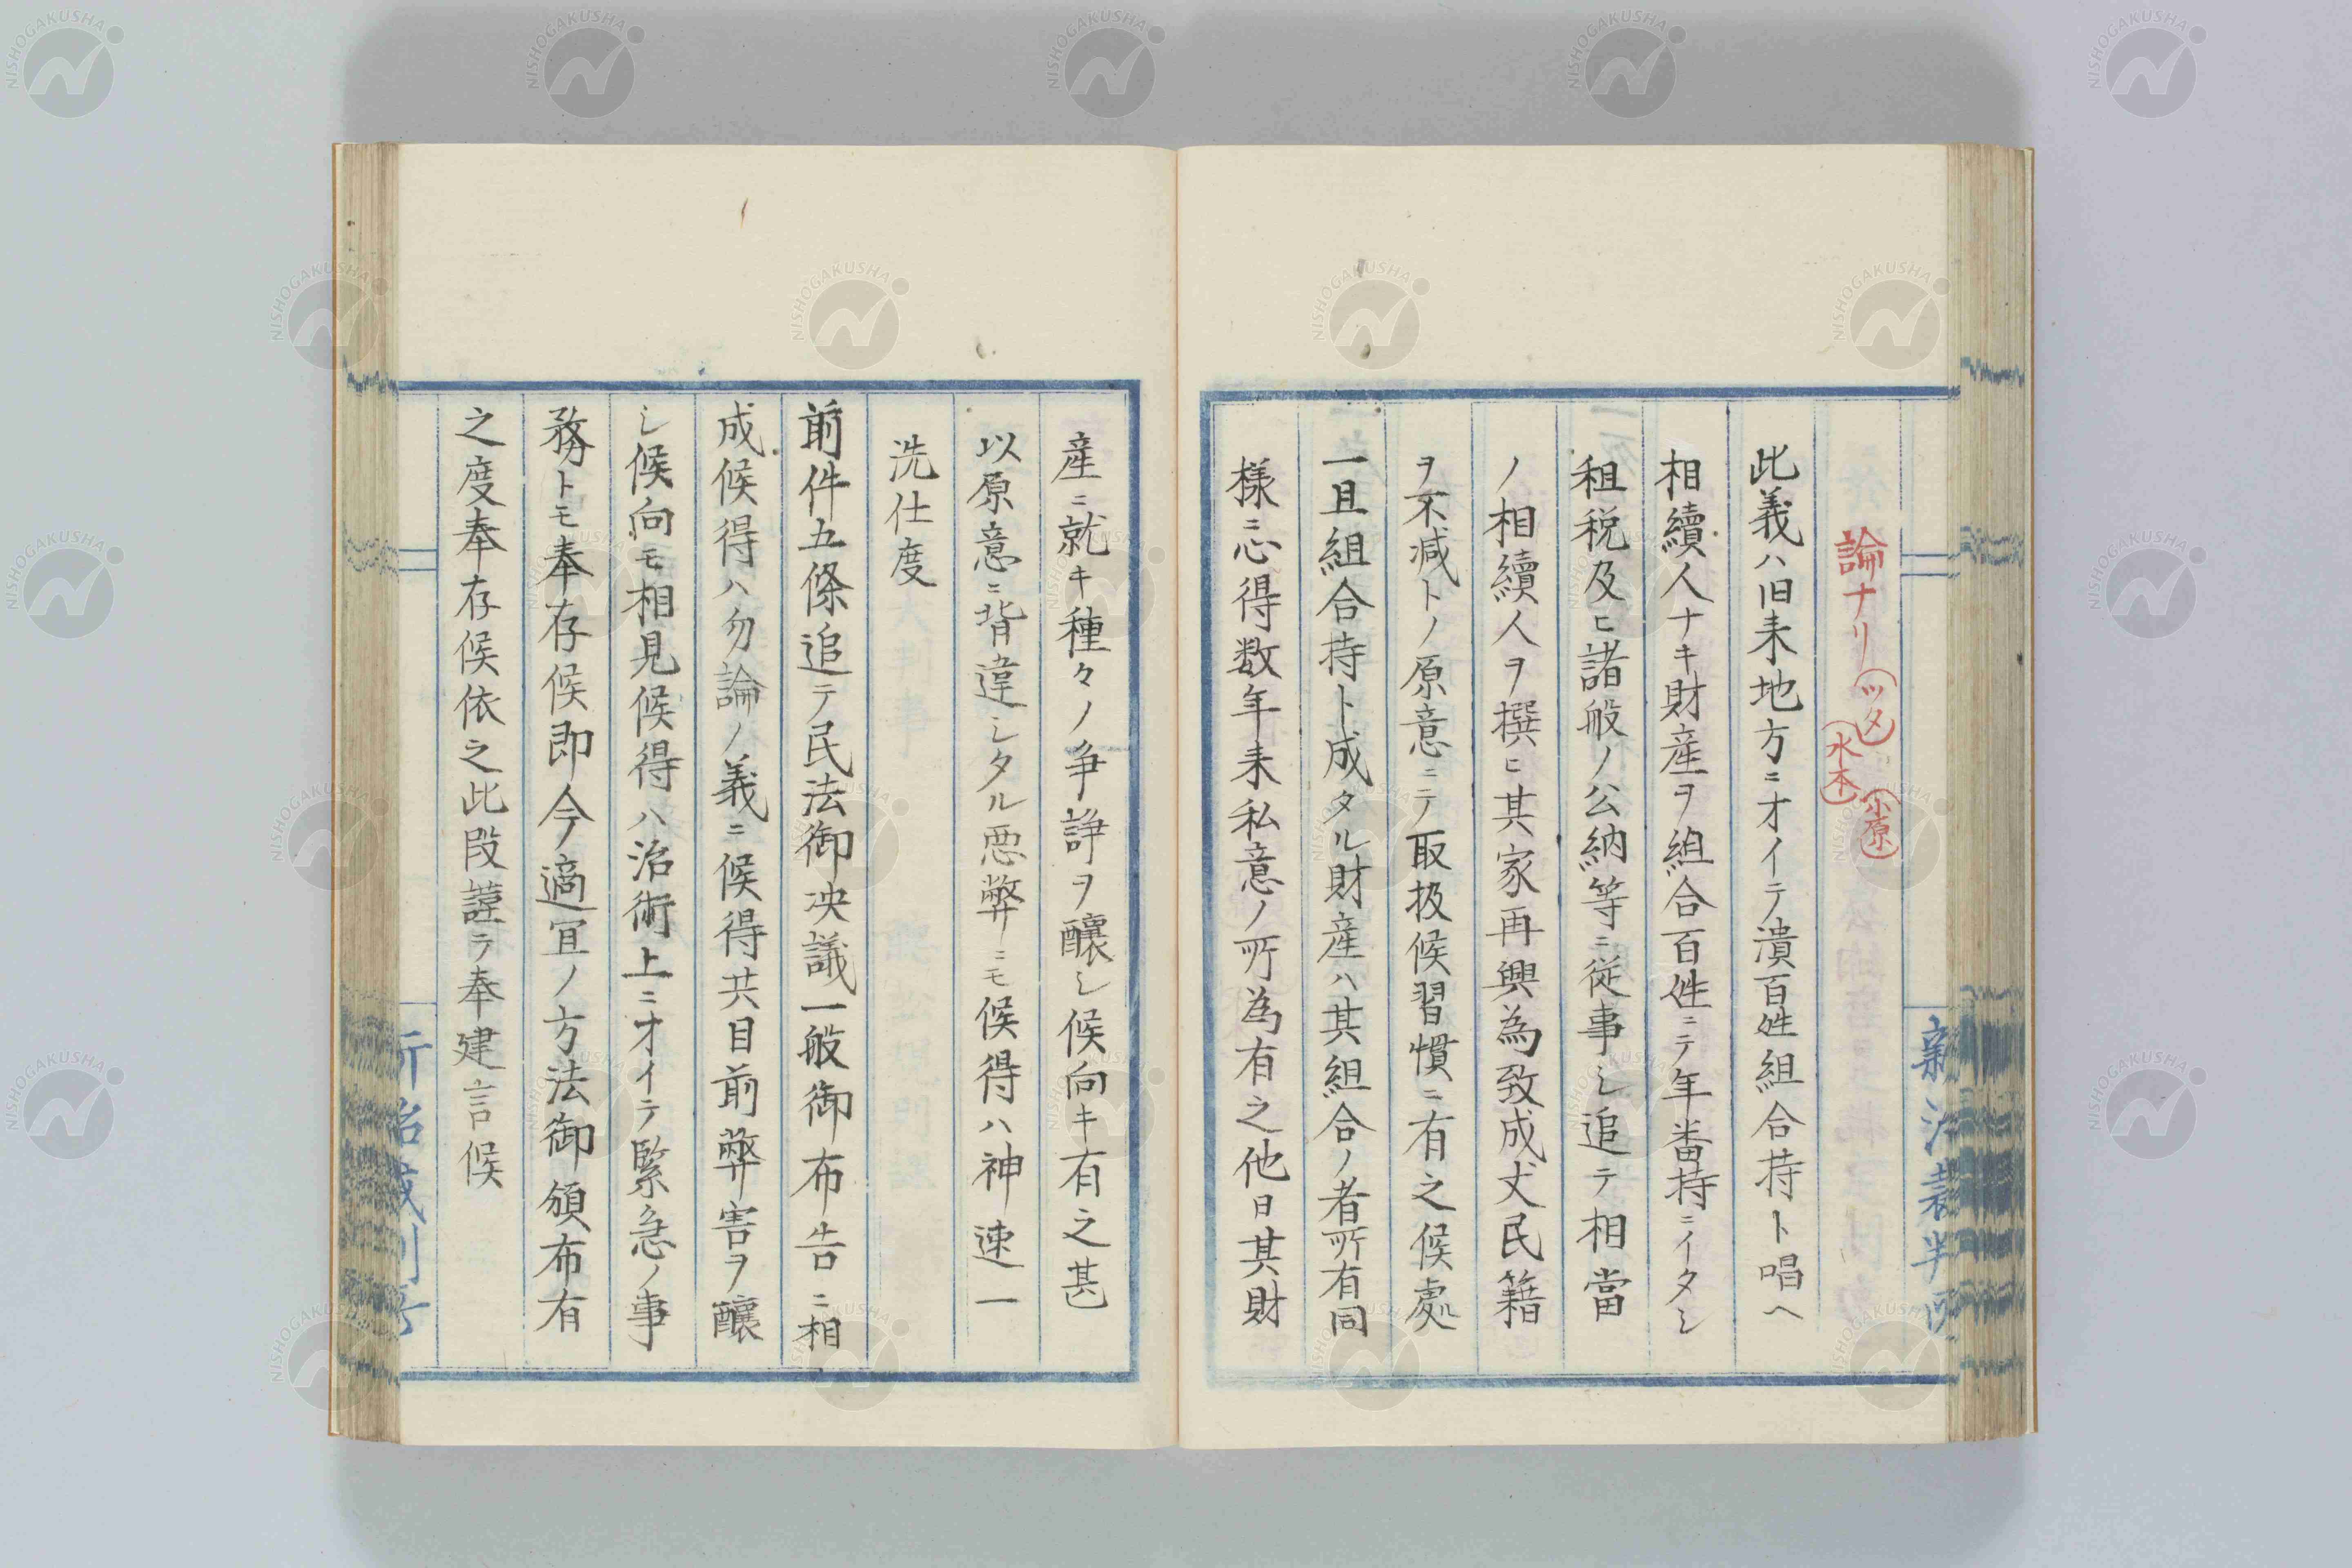 論ナリ(ツタ)(水本)(小原)
此義ハ旧来地方ニオイテ潰百姓組合持ト唱ヘ
相續人ナキ財産ヲ組合百姓ニテ年番持ニイタシ
租税及ヒ諸般ノ公納等ニ従事シ追テ相當
ノ相續人ヲ撰ヒ其家再興為致成丈民籍
ヲ不減トノ原意ニテ取扱候習慣ニ有之候處
一旦組合持ト成タル財産ハ其組合ノ者所有同
様ニ心得数年来私意ノ所為有之他日其財
産ニ就キ種々ノ争諍ヲ釀シ候向キ有之甚
以原意ニ背違シタル悪弊ニモ候得ハ神速一
洗仕度
前件五條追テ民法御决議一般御布告ニ相
成候得ハ勿論ノ義ニ候得共目前弊害ヲ釀
シ候向モ相見候得ハ治術上ニオイテ緊急ノ事
務トモ奉存候即今適宜ノ方法御頒布有
之度奉存候依之此段謹テ奉建言候
NISHOGAKUSHA